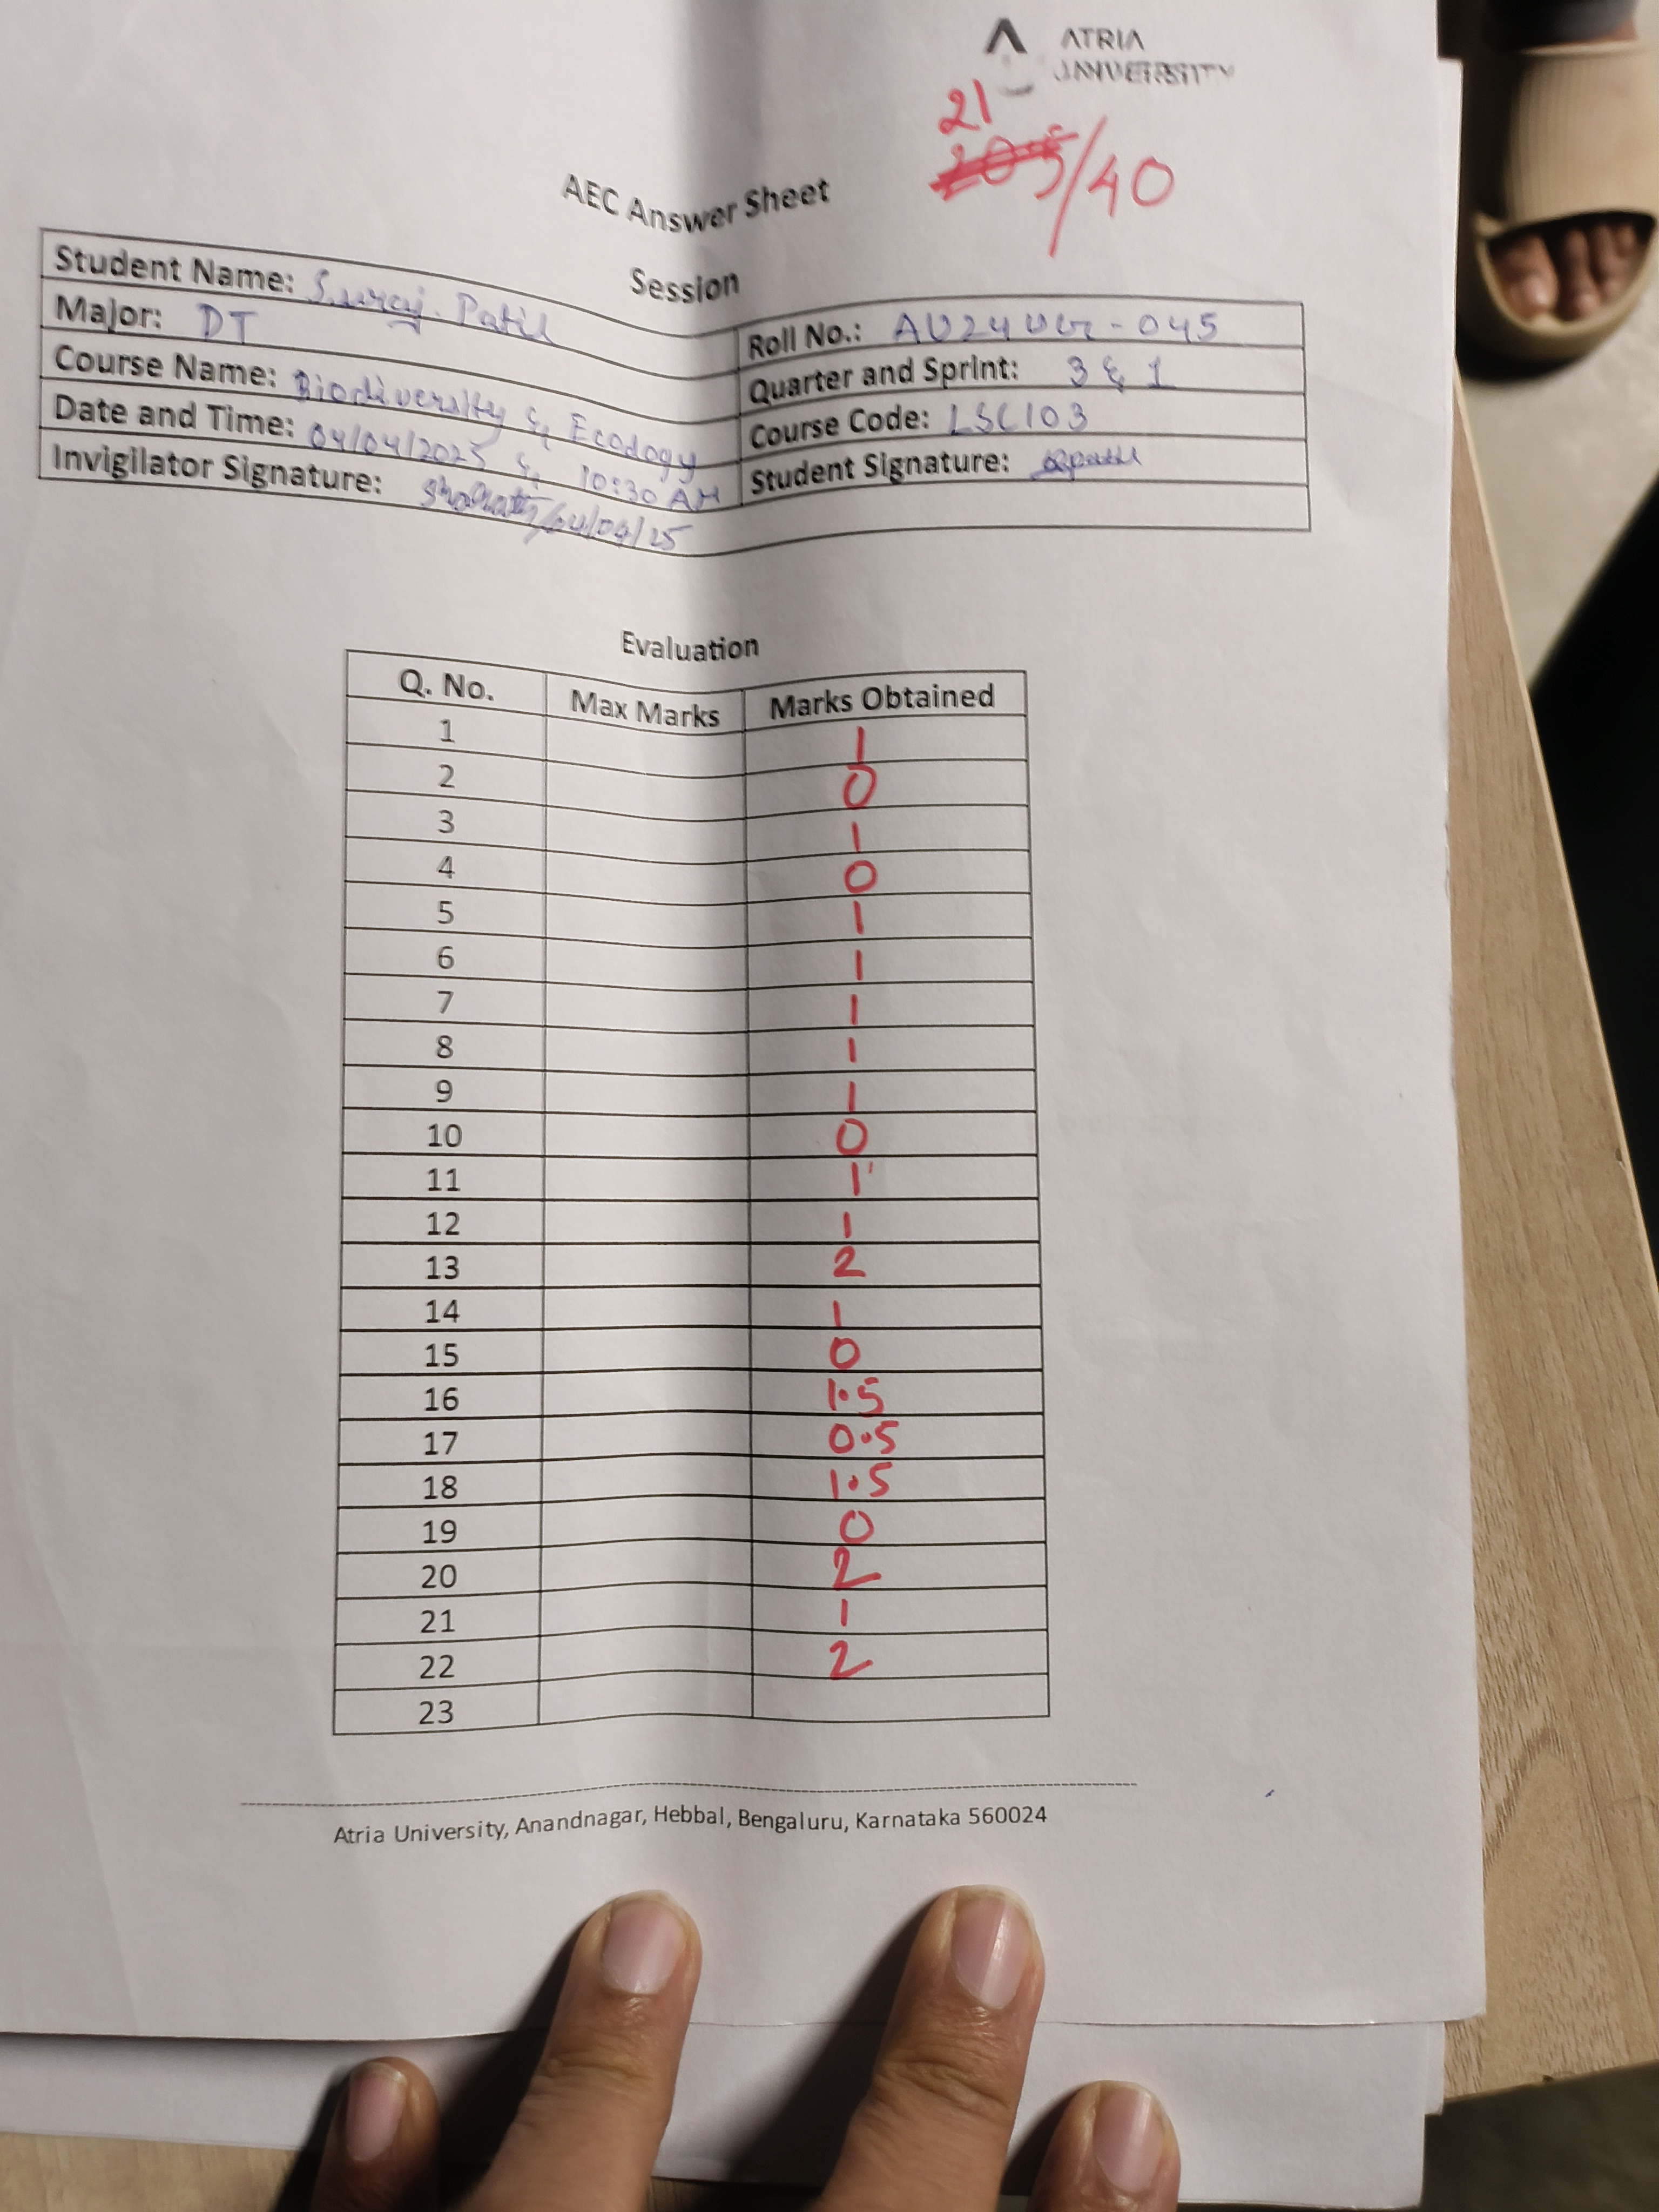 ATRIA
UNIVERSITY
21
20.5/40
AEC Answer Sheet
Session
Student Name: Suraj. Patil
Roll No.: AU24UG-045
Major: DT
Quarter and Sprint: 3 & 1
Course Name: Biodiversity & Ecology
Course Code: LSC103
Date and Time: 04/04/2025 & 10:30 AM
Student Signature:
Invigilator Signature: 04/04/25
Evaluation
Q. No. Max Marks Marks Obtained
1 1
2 0
3 1
4 0
5 1
6 1
7 1
8 1
9 1
10 0
11 1
12 1
13 2
14 1
15 0
16 1.5
17 0.5
18 1.5
19 0
20 2
21 1
22 2
23
Atria University, Anandnagar, Hebbal, Bengaluru, Karnataka 560024